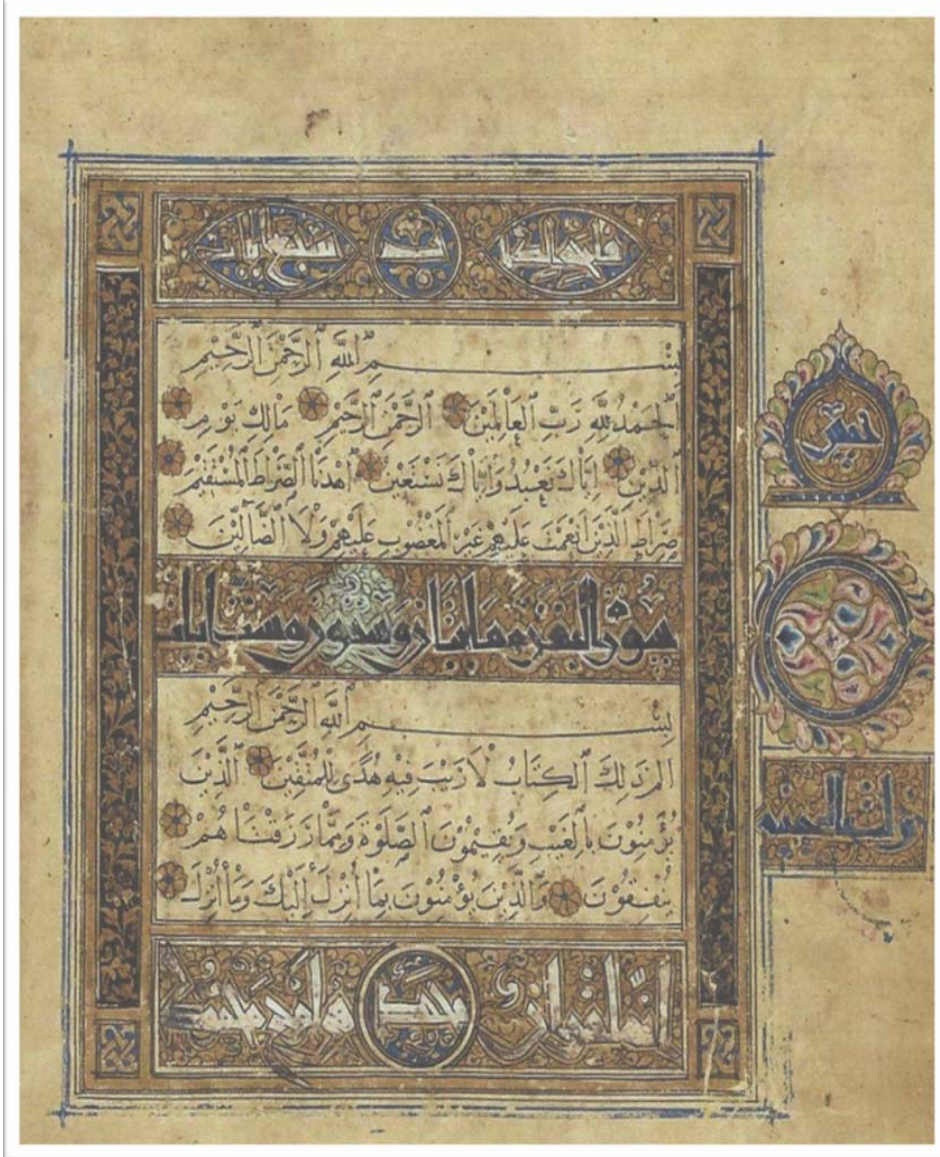 سبع ايات
بِسْمِ ٱللَّهِ ٱلرَّحْمٰنِ ٱلرَّحِيْمِ
اَلْحَمْدُ لِلَّهِ رَبِّ ٱلْعَالَمِيْنَ ٱلرَّحْمٰنِ ٱلرَّحِيْمِ مَالِكِ يَوْمِ
ٱلدِّيْنِ اِيَّاكَ نَعْبُدُ وَاِيَّاكَ نَسْتَعِيْنُ اِهْدِنَا ٱلصِّرَاطَ ٱلْمُسْتَقِيْمَ
صِرَاطَ ٱلَّذِيْنَ اَنْعَمْتَ عَلَيْهِمْ غَيْرِ ٱلْمَغْضُوْبِ عَلَيْهِمْ وَلَا ٱلضَّالِّيْنَ
سورة البقرة مايتان وثمنون وست ايات
بِسْمِ ٱللَّهِ ٱلرَّحْمٰنِ ٱلرَّحِيْمِ
الم ذٰلِكَ ٱلْكِتَابُ لَا رَيْبَ فِيْهِ هُدًى لِلْمُتَّقِيْنَ ٱلَّذِيْنَ
يُؤْمِنُوْنَ بِٱلْغَيْبِ وَيُقِيْمُوْنَ ٱلصَّلٰوةَ وَمِمَّا رَزَقْنَاهُمْ
يُنْفِقُوْنَ وَٱلَّذِيْنَ يُؤْمِنُوْنَ بِمَا أُنْزِلَ إِلَيْكَ وَمَا أُنْزِلَ